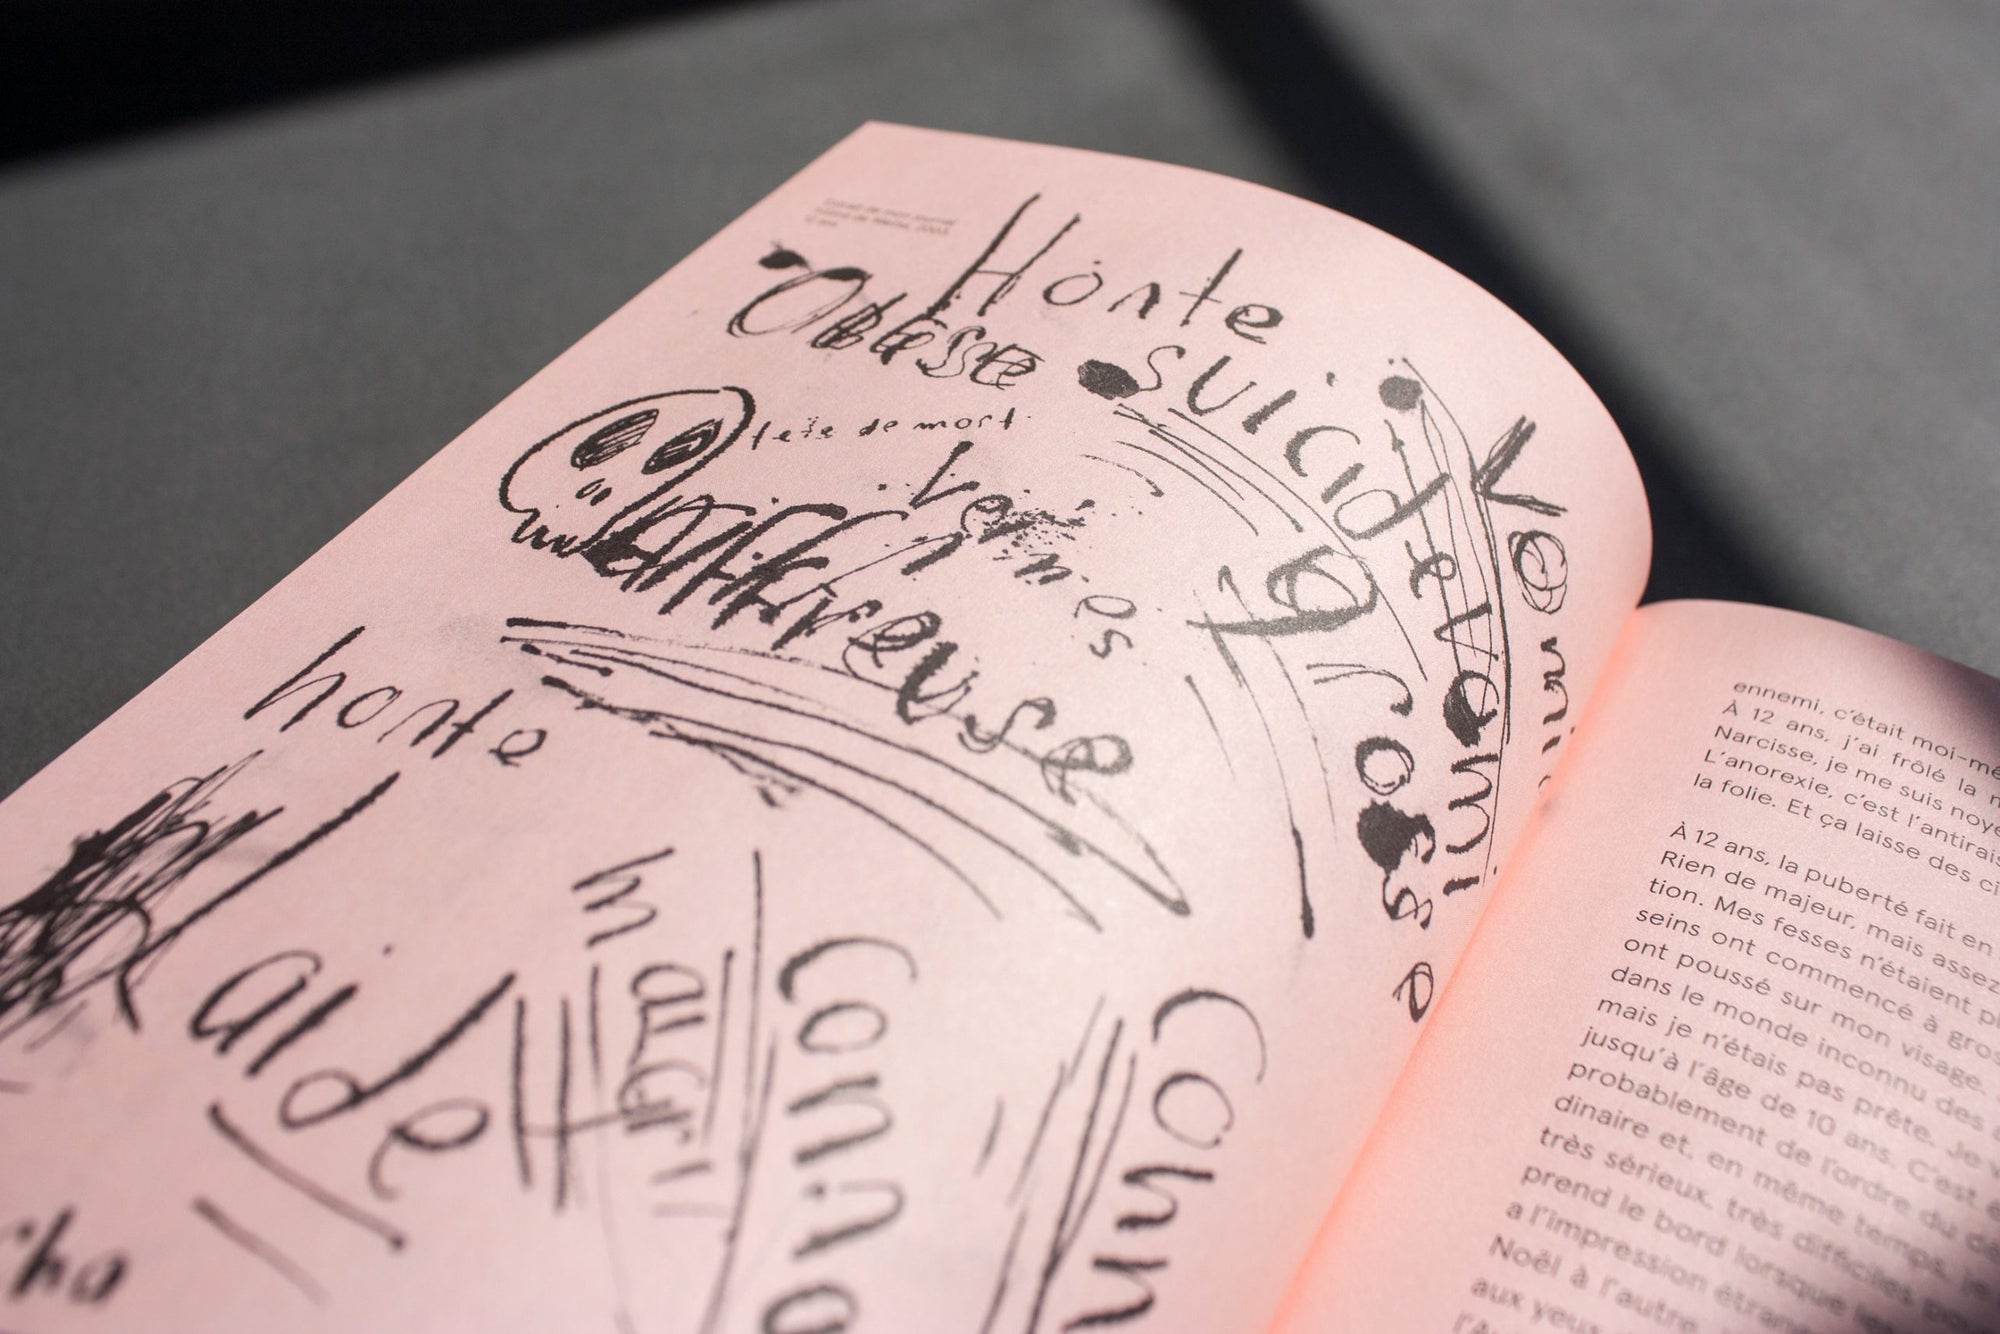 Extrait de mon journal
intime de Marne, 2003,
12 ans
Honte
Obèse
suicide
tête de mort
Vomi
venimi
Vermines
Affreuse
grosse
honte
laide
maigri
Conn
Conn
ennemi, c'était moi-mê
À 12 ans, j'ai frôlé la m
Narcisse, je me suis noyé
L'anorexie, c'est l'antirais
la folie. Et ça laisse des ci
À 12 ans, la puberté fait en
Rien de majeur, mais assez
tion. Mes fesses n'étaient pl
seins ont commencé à gros
ont poussé sur mon visage.
dans le monde inconnu des a
mais je n'étais pas prête. Je v
jusqu'à l'âge de 10 ans. C'est é
probablement de l'ordre du dé
dinaire et, en même temps, je
très sérieux, très difficiles, po
prend le bord lorsque les
a l'impression étrange
Noël à l'autre,
aux yeux d